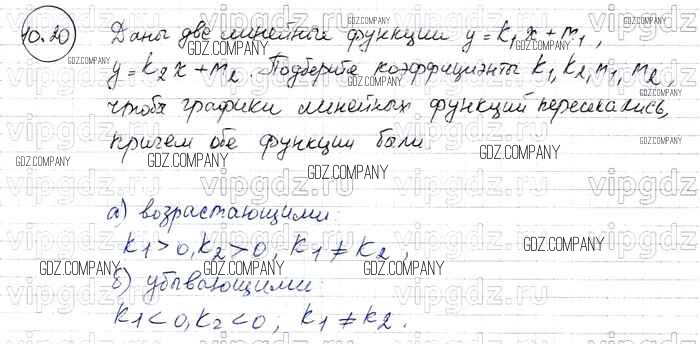 10.20 Даны две линейные функции y = k₁x + m₁,
y = k₂x + m₂. Подберите коэффициенты k₁, k₂, m₁, m₂,
чтобы графики линейных функций пересекались,
причем обе функции были
а) возрастающими:
k₁ > 0, k₂ > 0; k₁ ≠ k₂,
б) убывающими:
k₁ < 0, k₂ < 0; k₁ ≠ k₂.
GDZ.COMPANY
vipgdz.ru